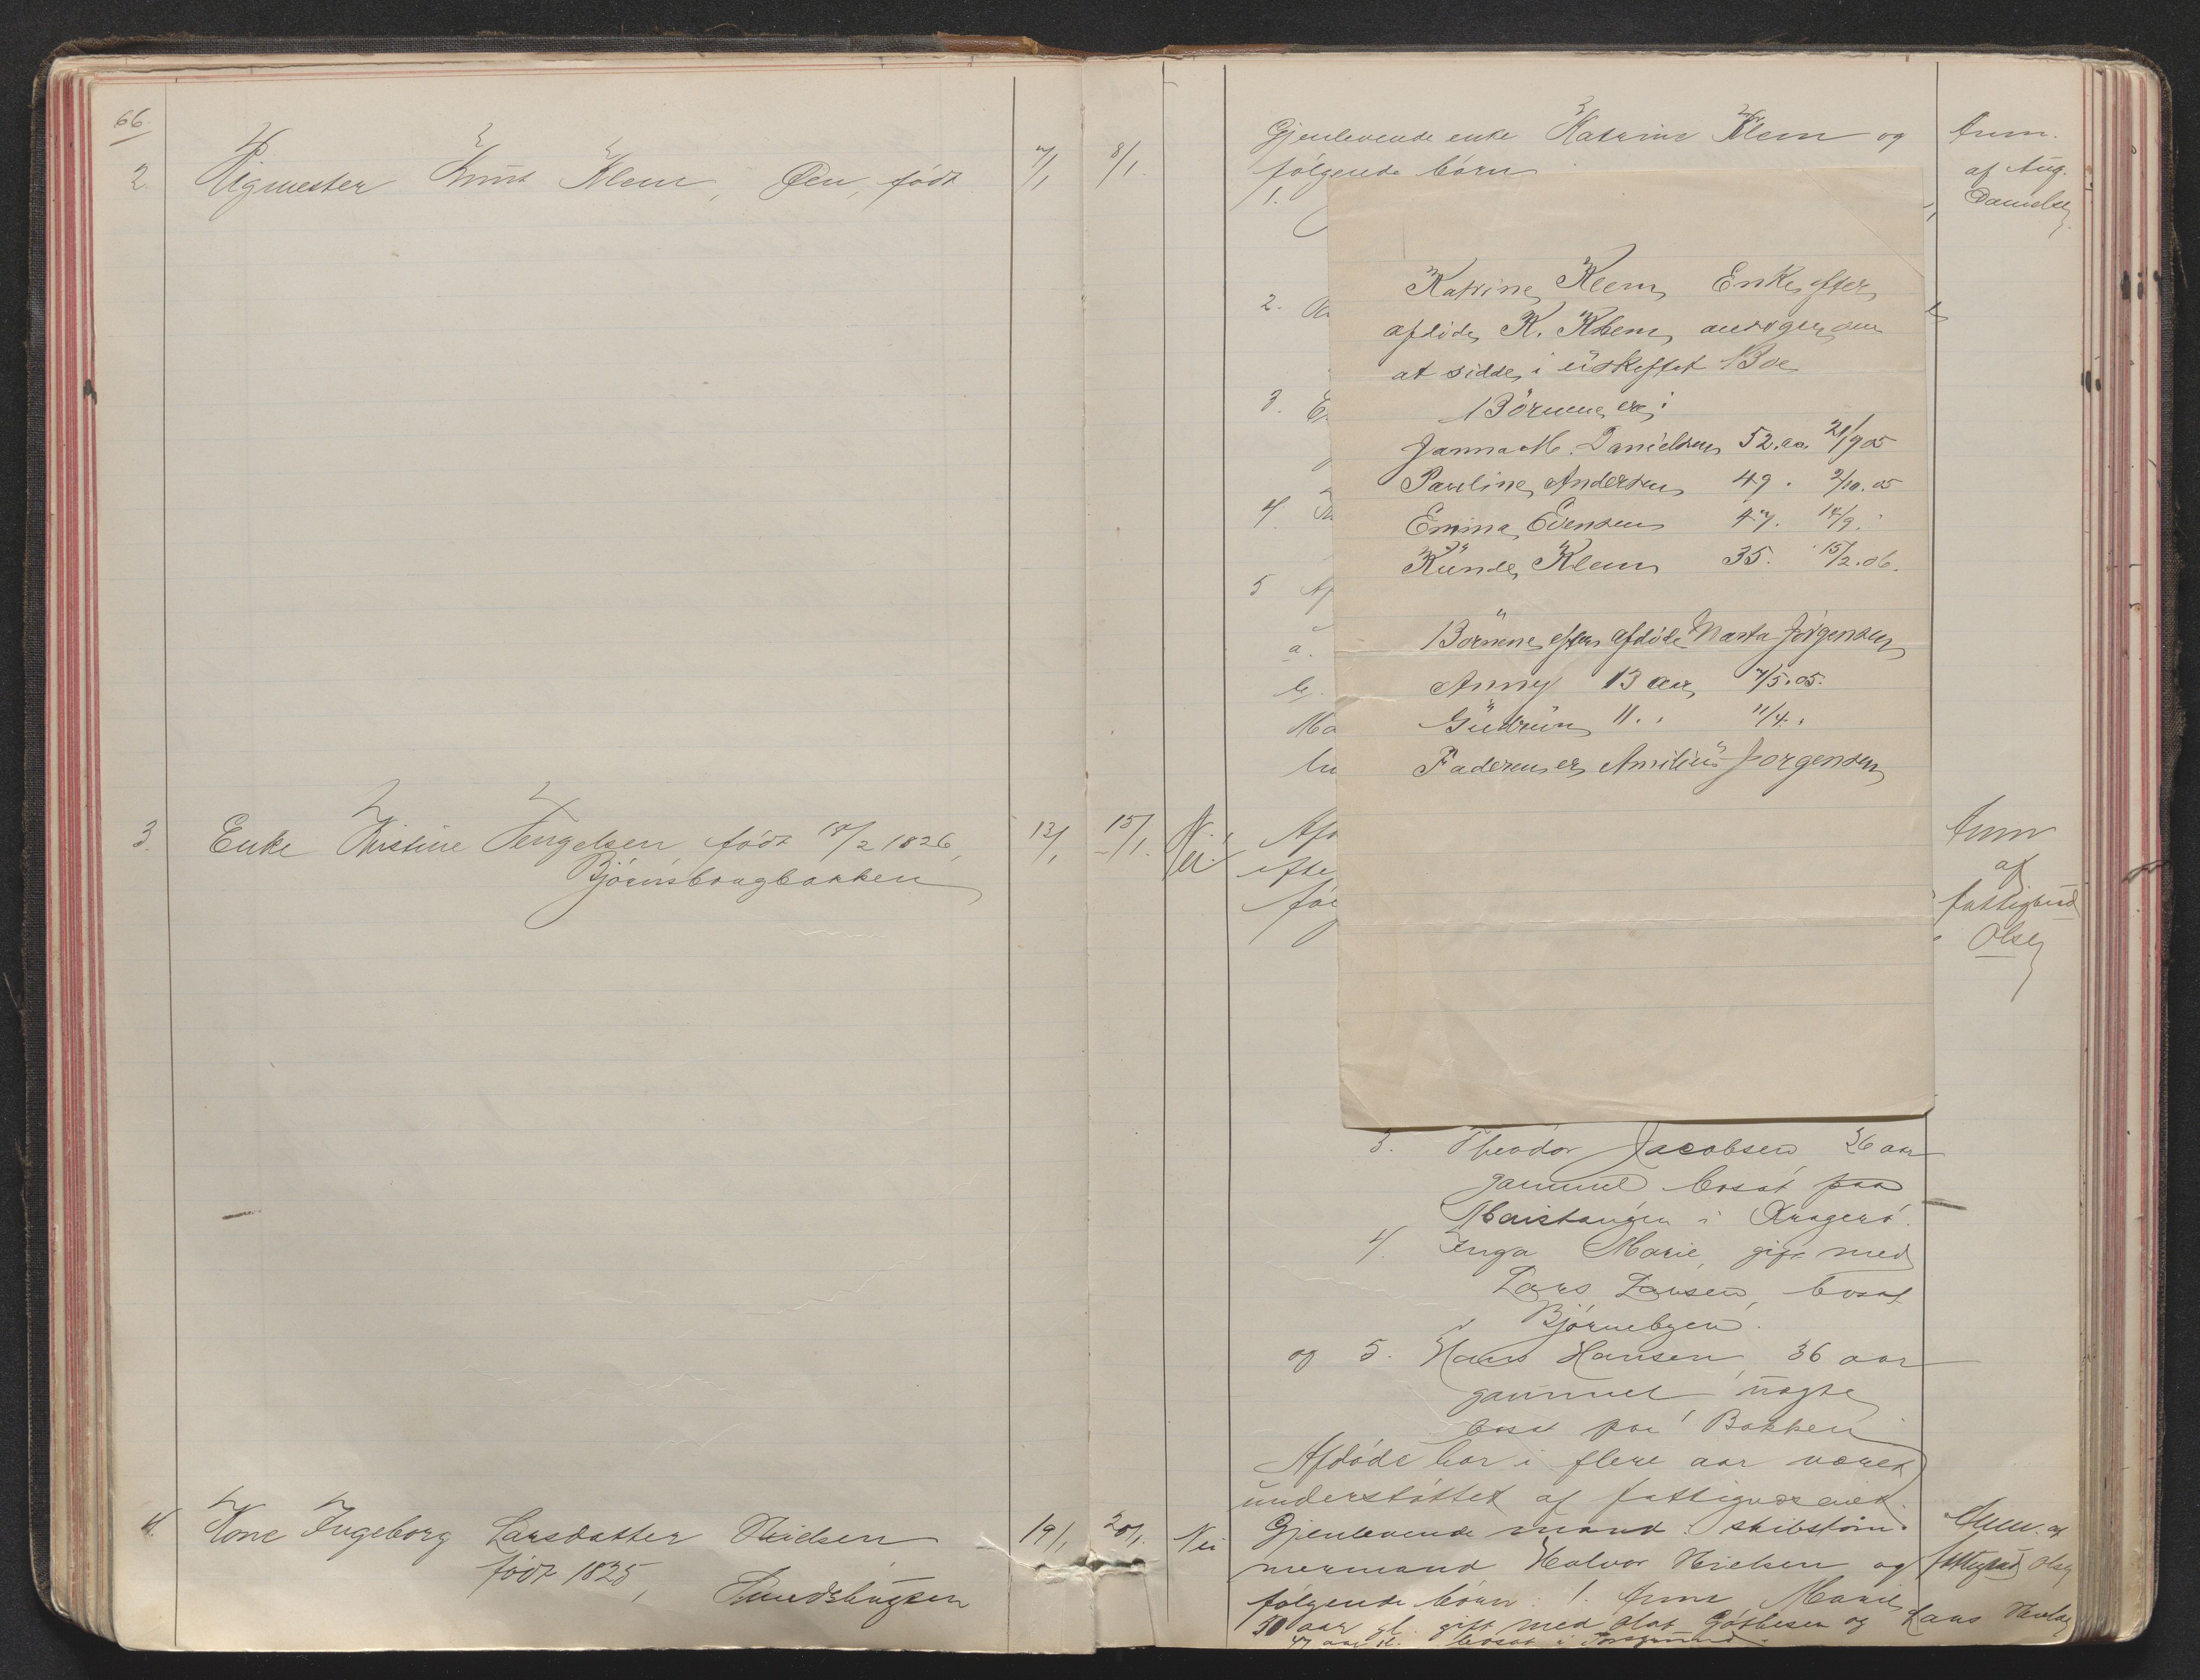 66.
2. Rigmester Knut Klem, Øen, født 7/1 8/1.
3. Enke Kristine Tengelsen født 18/2 1826, 13/1 15/1. Nei.
Bjørnsborgbakken
4. Kone Ingeborg Larsdatter Nielsen 19/1 20/1. Nei
født 1825, Sundsbugten
Gjenlevende enke Katrine Klem og
følgende børn
1.
2.
3.
4.
5
a.
b.
Katrine Klem, Enke efter
afdøde K. Klem, ansøger om
at sidde i uskiftet Boe
Börnene er:
Janna M. Danielsen 52. aa. 21/9 05
Pauline Andersen 49. 2/10. 05
Emma Evensen 47. 12/9.
Künde Klem 35. 15/2. 06.
Börnene efter afdøde Marta Jörgensen
Anny 13 aar 7/5. 05.
Gudrun 11. 11/4.
Faderen er Amilius Jorgensen
3. Theodor Jacobsen 26 aar
gammel bosat paa
i Kragerø.
4. Inga Marie, gift med
Lars Larsen, bosat
Bjørnebyen.
og 5. Hans Hansen, 36 aar
gammel, ugift,
bosat paa Bakken
Afdøde har i flere aar været
understøttet af fattigvæsenet.
Gjenlevende mand: skibstøm-
mermand Halvor Nielsen og
følgende børn: 1. Anne Marie
50 aar gl. gift med Olaf Gotliesen og Lars Nielsen
47 aar gl. bosat i Porsgrund
Anm.
af Aug.
Danielsen
Anm
af
fattigbud
Olsen
Anm. af
fattigbud Olsen